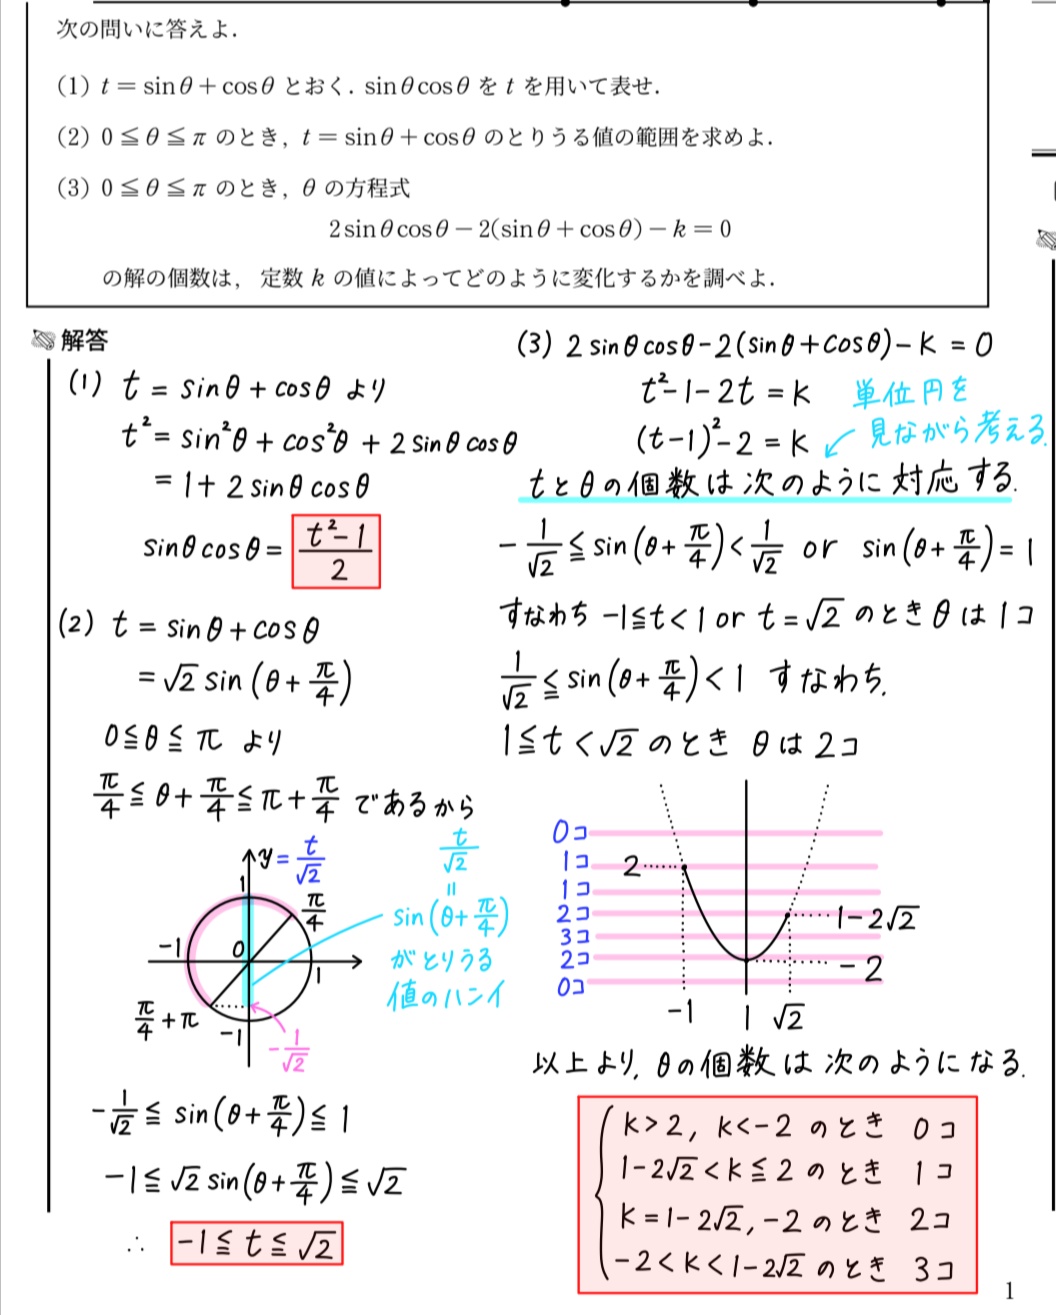 次の問いに答えよ.
(1) t = sinθ + cosθ とおく. sinθcosθ を t を用いて表せ.
(2) 0 ≦ θ ≦ π のとき, t = sinθ + cosθ のとりうる値の範囲を求めよ.
(3) 0 ≦ θ ≦ π のとき, θ の方程式
2sinθcosθ − 2(sinθ + cosθ) − k = 0
の解の個数は, 定数 k の値によってどのように変化するかを調べよ.
解答
(1) t = sinθ + cosθ より
t² = sin²θ + cos²θ + 2sinθcosθ
= 1 + 2sinθcosθ
sinθcosθ = (t²−1)/2
(2) t = sinθ + cosθ
= √2 sin(θ + π/4)
0 ≦ θ ≦ π より
π/4 ≦ θ + π/4 ≦ π + π/4 であるから
y = t/√2
1
π/4
−1
0
1
π/4 + π
−1
−1/√2
t/√2
=
sin(θ + π/4)
がとりうる
値のハンイ
−1/√2 ≦ sin(θ + π/4) ≦ 1
−1 ≦ √2 sin(θ + π/4) ≦ √2
∴ −1 ≦ t ≦ √2
(3) 2sinθcosθ − 2(sinθ + cosθ) − k = 0
t² − 1 − 2t = k
(t−1)² − 2 = k
単位円を
見ながら考える.
tとθの個数は次のように対応する.
−1/√2 ≦ sin(θ + π/4) < 1/√2 or sin(θ + π/4) = 1
すなわち −1 ≦ t < 1 or t = √2 のとき θは1コ
1/√2 ≦ sin(θ + π/4) < 1 すなわち,
1 ≦ t < √2 のとき θは2コ
0コ
1コ
1コ
2コ
3コ
2コ
0コ
2
1−2√2
−2
−1
1
√2
以上より, θの個数は次のようになる.
k > 2, k < −2 のとき 0コ
1−2√2 < k ≦ 2 のとき 1コ
k = 1−2√2, −2 のとき 2コ
−2 < k < 1−2√2 のとき 3コ
1